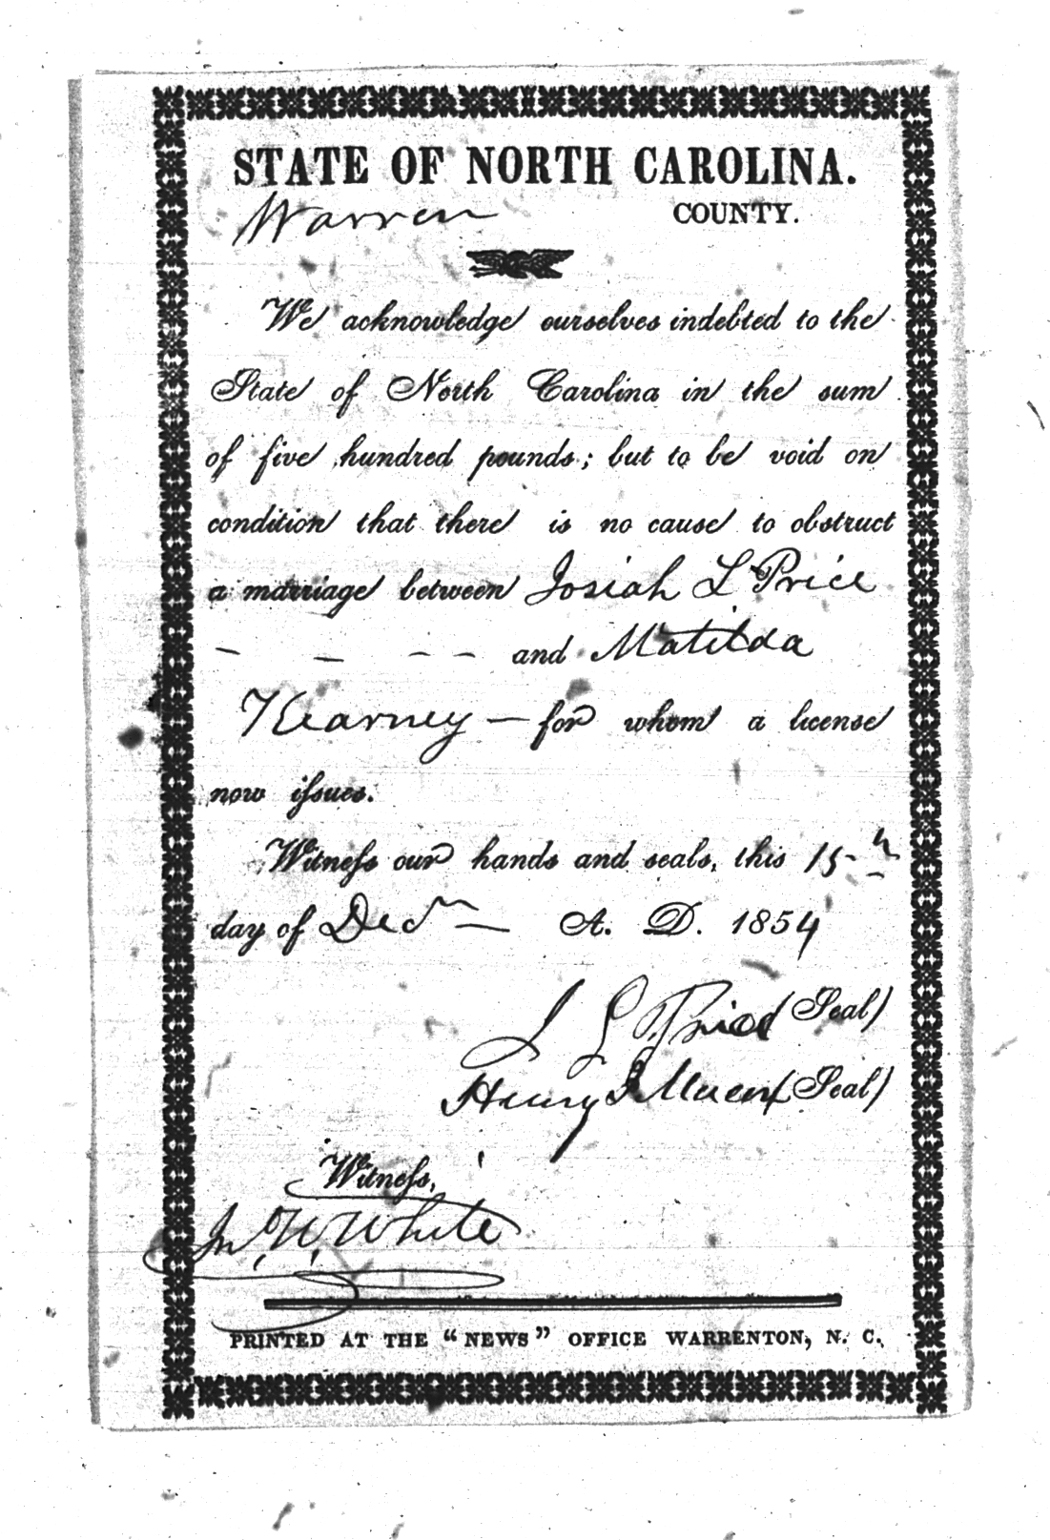 STATE OF NORTH CAROLINA.
Warren COUNTY.
We acknowledge ourselves indebted to the
State of North Carolina in the sum
of five hundred pounds; but to be void on
condition that there is no cause to obstruct
a marriage between Josiah L Price
— — — — and Matilda
Kearney — for whom a license
now issues.
Witness our hands and seals, this 15th
day of Decr — A. D. 1854
J L Price (Seal)
Henry (Seal)
Witness,
Jn. W. White
PRINTED AT THE "NEWS" OFFICE WARRENTON, N. C.